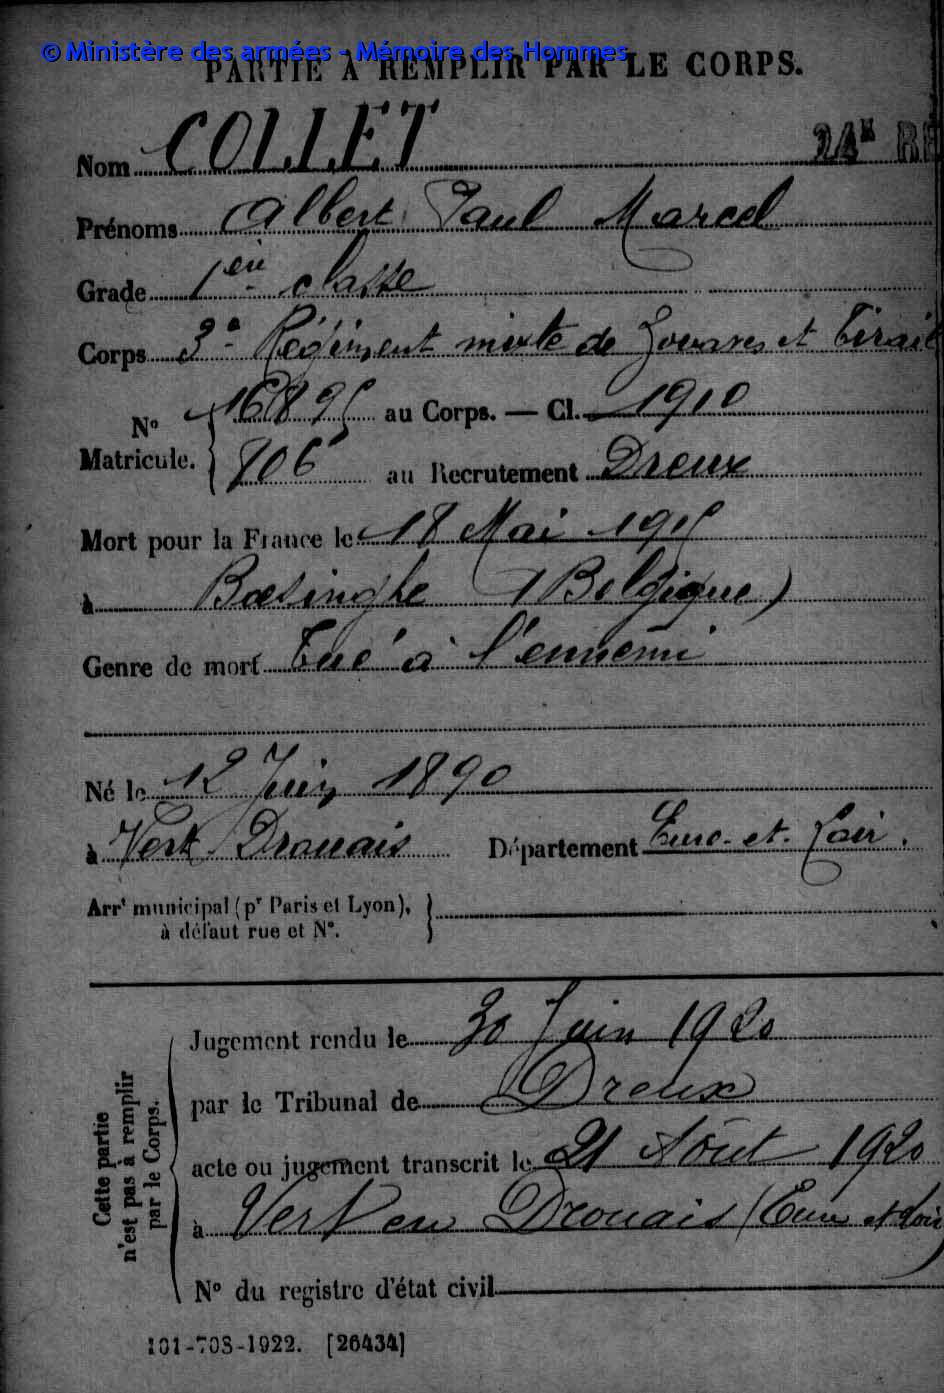 © Ministère des armées - Mémoire des Hommes
PARTIE À REMPLIR PAR LE CORPS.
Nom COLLET
Prénoms Albert Paul Marcel
Grade 1ère classe
Corps 3e Régiment mixte de Zouaves et Tirail
No Matricule. 16895 au Corps. — Cl. 1910
906 au Recrutement Dreux
Mort pour la France le 18 Mai 1915
à Bœsinghe (Belgique)
Genre de mort Tué à l'ennemi
Né le 12 Juin 1890
à Vert Drouais Département Eure-et-Loir.
Arrt municipal (pr Paris et Lyon),
à défaut rue et No.
Cette partie
n'est pas à remplir
par le Corps.
Jugement rendu le 30 Juin 1920
par le Tribunal de Dreux
acte ou jugement transcrit le 21 Août 1920
à Vert en Drouais (Eure et Loir)
No du registre d'état civil
101-708-1922. [26434]